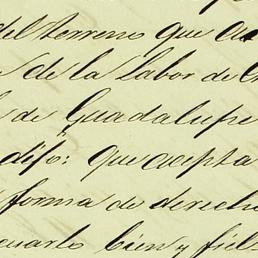 del terreno que
de la Labor de
de Guadalupe
dijo: que acepta
forma de derecho
bien y fiel